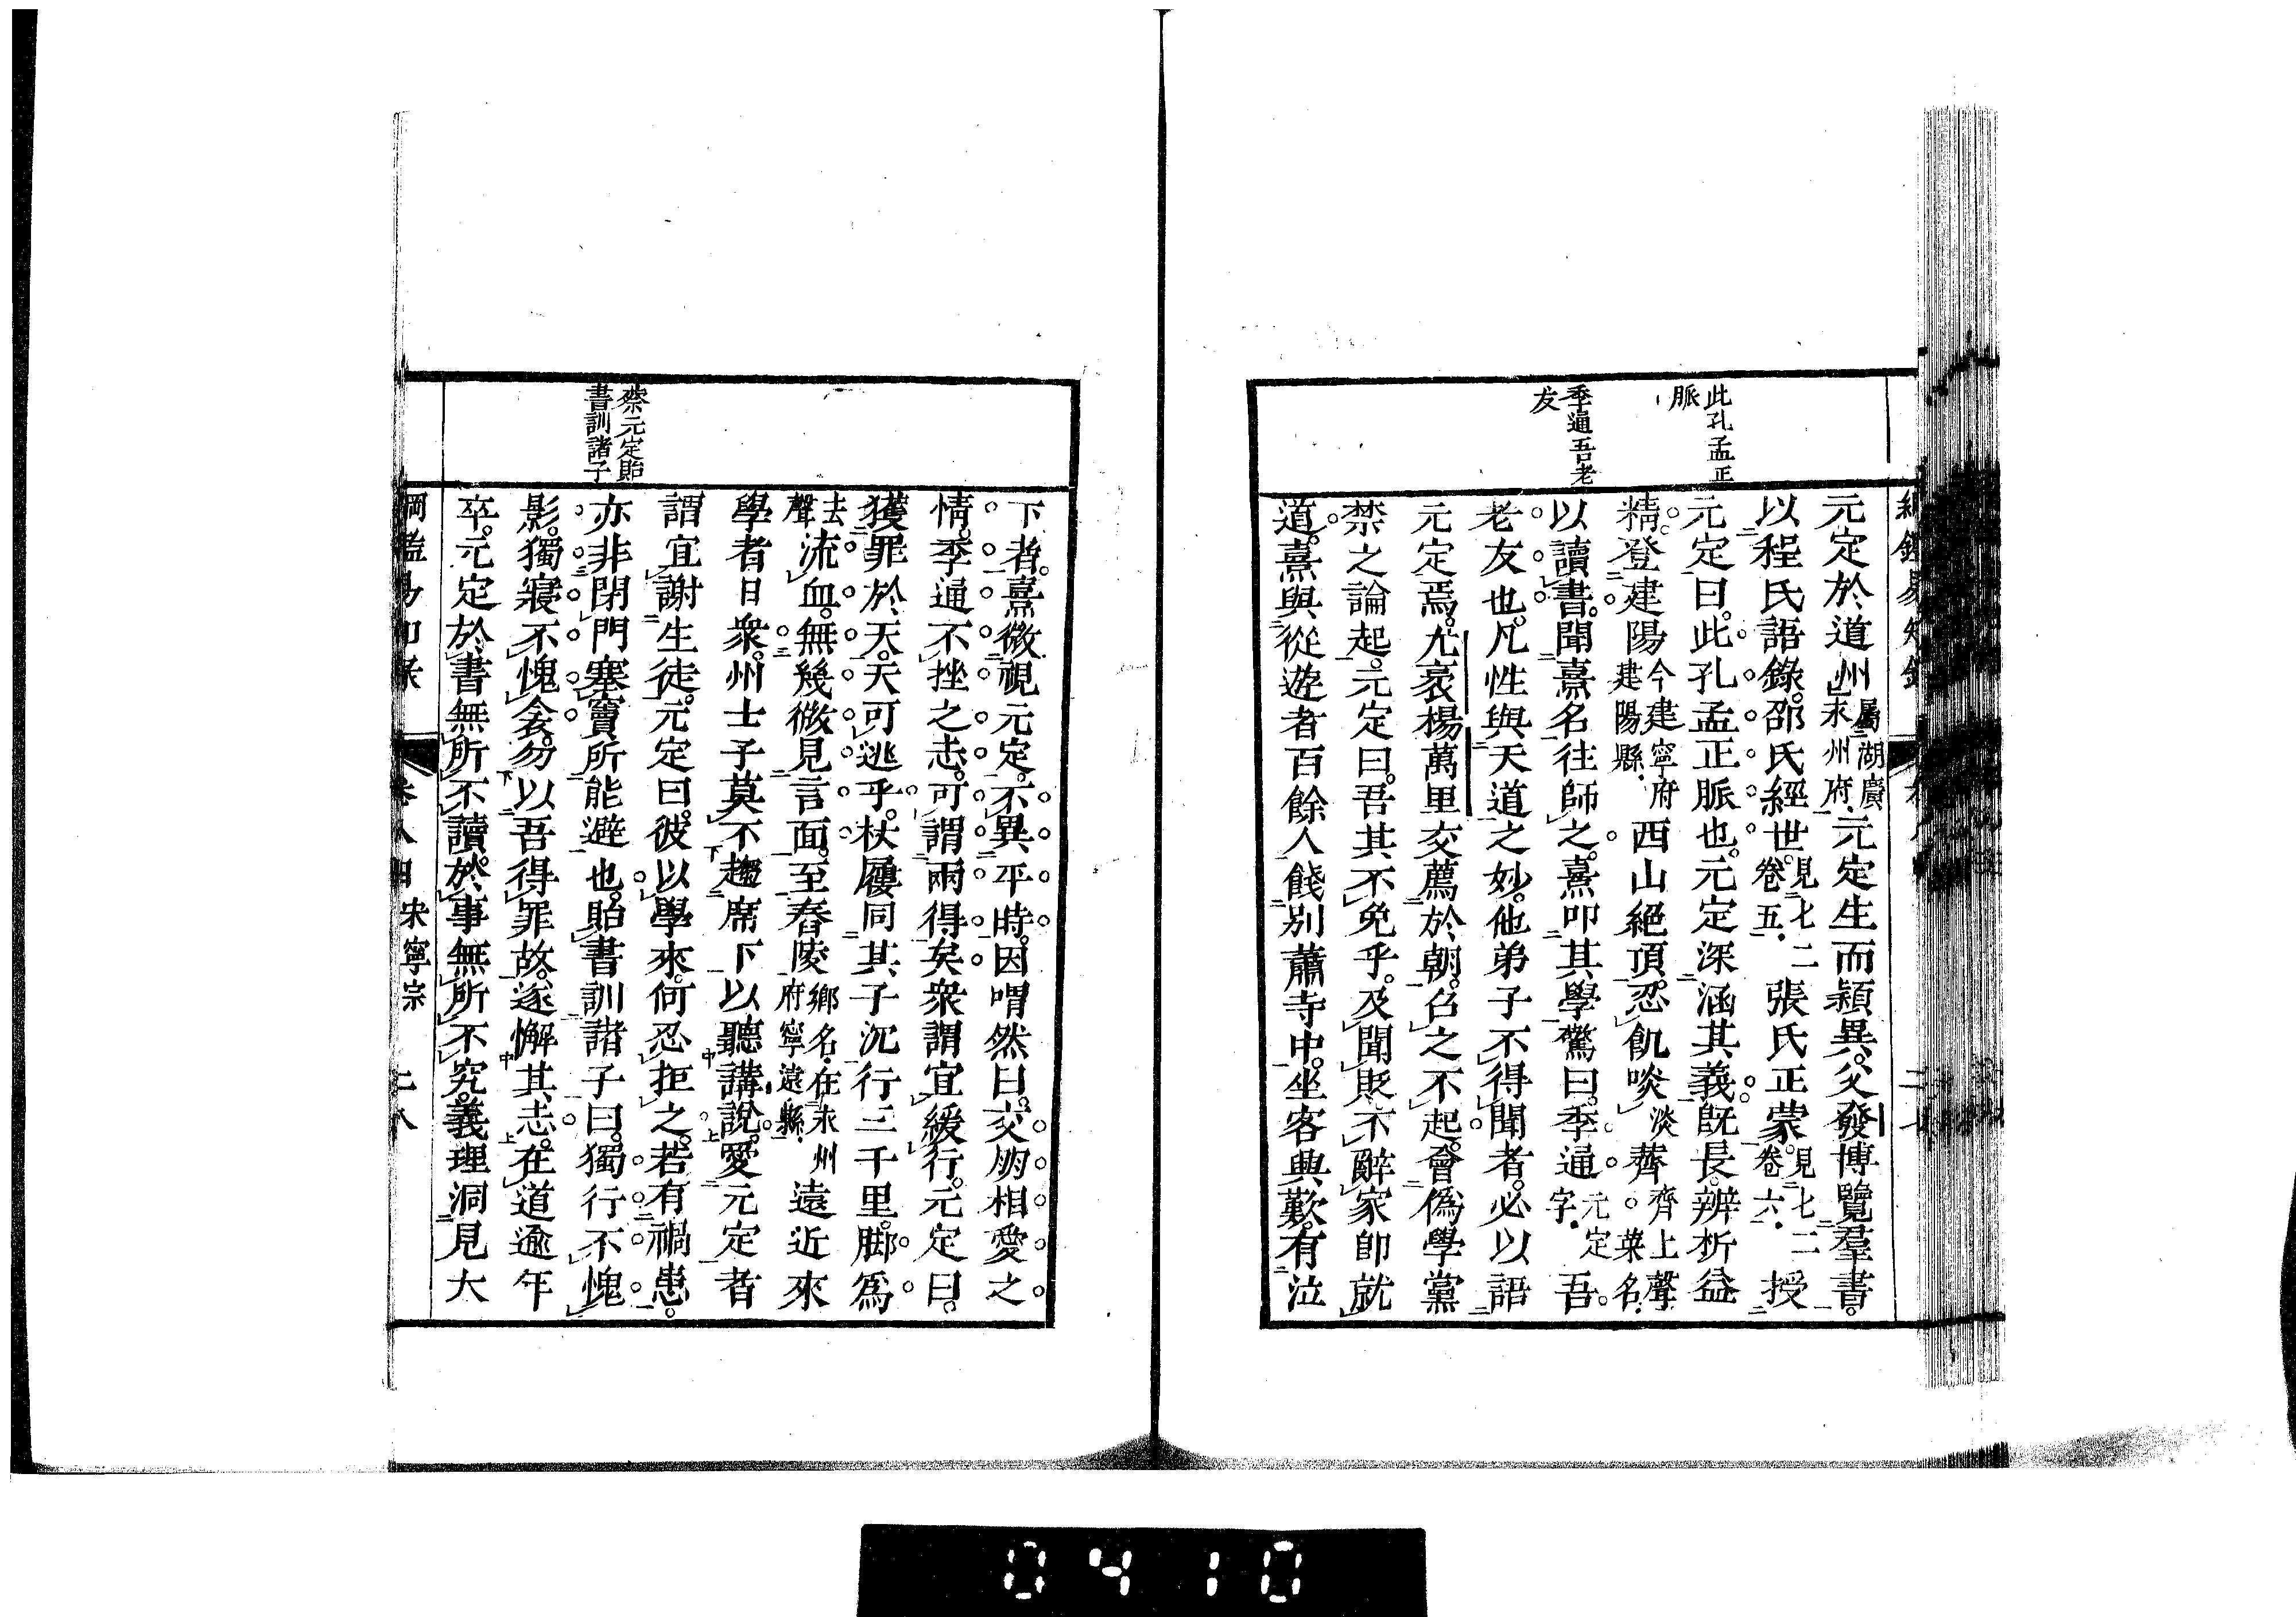 此孔孟正
脈
季通吾老
友
元定於道州屬湖廣永州府元定生而穎異父發博覽羣書。
以程氏語錄邵氏經世。見七二卷五張氏正蒙見七二卷六授
元定曰。此孔孟正脈也。元定深涵其義。既長。辨析益
精。登建陽今建寧府建陽縣西山絕頂。忍飢啖淡薺齊上聲菜名
以讀書。聞熹名往師之。熹叩其學驚曰。季通元定字吾
老友也。凡性與天道之妙。他弟子不得聞者。必以語
元定焉。尤袤楊萬里交薦於朝。召之不起。會偽學黨
禁之論起。元定曰。吾其不免乎。及聞貶。不辭家即就
道。熹與從遊者百餘人餞別蕭寺中。坐客興歎。有泣
蔡元定貽
書訓諸子
下者。熹微視元定。不異平時。因喟然曰。交朋相愛之
情。季通不挫之志。可謂兩得矣。衆謂宜緩行。元定曰。
獲罪於天。天可逃乎。杖屨同其子沉行三千里。脚爲
去聲流血。無幾微見言面。至春陵鄉名在永州府寧遠縣遠近來
學者日衆。州士子莫不趨席下以聽講說。愛元定者
謂宜謝生徒。元定曰。彼以學來。何忍拒之。若有禍患。
亦非閉門塞竇所能避也。貽書訓諸子曰。獨行不愧
影。獨寢不愧衾。勿以吾得罪故。遂懈其志。在道逾年
卒。元定於書無所不讀。於事無所不究。義理洞見大
宋寧宗
二八
0410